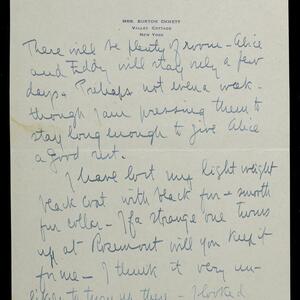 MRS. BURTON EMMETT
VALLEY COTTAGE
NEW YORK
There will be plenty of room – Alice
and Eddy will stay only a few
days – Perhaps not even a week –
though I am pressing them to
stay long enough to give Alice
a good rest.
I have lost my light weight
black coat with black fur – smooth
fur collar – If a strange one turns
up at Rosemont will you keep it
for me – I think it very un-
likely to turn up there – I looked